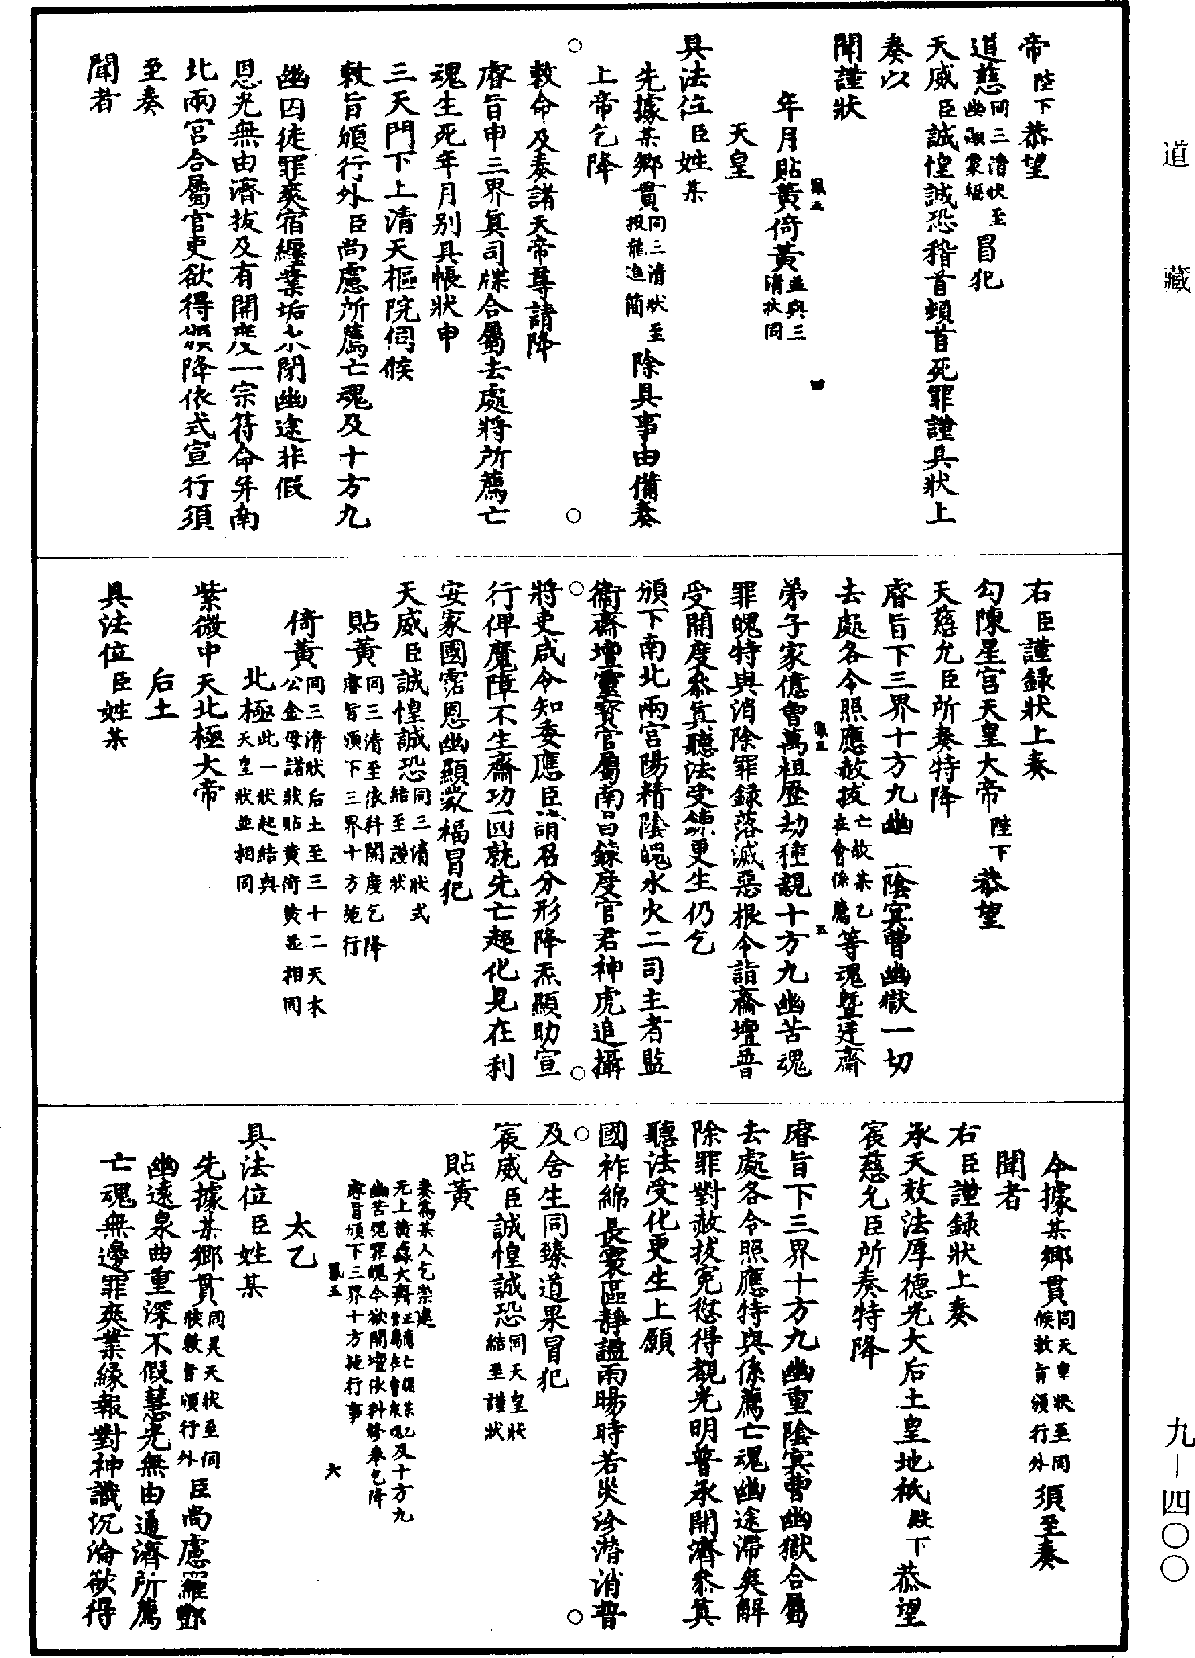 道藏
九—四〇〇
帝陛下恭望
道慈同三清狀至幽顯蒙福冒犯
天威臣誠惶誠恐稽首頓首死罪謹具狀上
奏以
聞謹狀
年月貼黃倚黃並與三清狀同
天皇
具法位臣姓某
先據某鄉貫同三清狀至投龍進簡除具事由備奏
上帝乞降
敕命及奏諸天帝尊請降
睿旨申三界真司牒合屬去處將所薦亡
魂生死年月別具帳狀申
三天門下上清天樞院伺候
敕旨頒行外臣尚慮所薦亡魂及十方九
幽囚徒罪爽宿纏業垢永閉幽途非假
恩光無由濟拔及有開度一宗符命并南
北兩宮合屬官吏欲得頒降依式宣行須
至奏
聞者
右臣謹錄狀上奏
勾陳星宮天皇大帝陛下恭望
天慈允臣所奏特降
睿旨下三界十方九幽一陰冥曹幽獄一切
去處各令照應赦拔亡故某乙在會係薦等魂暨廷齋
弟子家億曾萬祖歷劫種親十方九幽苦魂
罪魄特與消除罪錄落滅惡根令詣齋壇普
受開度參真聽法受鍊更生仍乞
頒下南北兩宮陽精陰魄水火二司主者監
衛齋壇靈寶官屬南昌鍊度官君神虎追攝
將吏咸令知委應臣請召分形降炁顯助宣
行俾魔障不生齋功圓就先亡超化見在利
安家國霑恩幽顯蒙福冒犯
天威臣誠惶誠恐同三清狀式結至謹狀
貼黃同三清至依科開度乞降睿旨頒下三界十方施行
倚黃同三清狀后土至三十二天木公金母諸狀貼黃倚黃並相同
北極此一狀起結與天皇狀並相同
紫微中天北極大帝
后土
具法位臣姓某
今據某鄉貫同天皇狀至伺候敕旨頒行外須至奏
聞者
右臣謹錄狀上奏
承天效法厚德光大后土皇地祇殿下恭望
宸慈允臣所奏特降
睿旨下三界十方九幽重陰冥曹幽獄合屬
去處各令照應特與係薦亡魂幽途滯爽解
除罪對赦拔冤愆得覩光明普承開濟參真
聽法受化更生上願
國祚綿長寰區靜謐雨暘時若災沴潛消普
及含生同臻道果冒犯
宸威臣誠惶誠恐同天皇狀結至謹狀
貼黃
奏為某人乞崇建
无上黃籙大齋
幽苦魂罪魄今欲開壇依科修奉乞降
睿旨頒下三界十方施行事
太乙
具法位臣姓某
先據某鄉貫同昊天狀至伺候敕旨頒行外臣尚慮羅酆
幽遠泉曲重深不假慧光無由通濟所薦
亡魂無邊罪爽業緣報對神識沉淪欲得